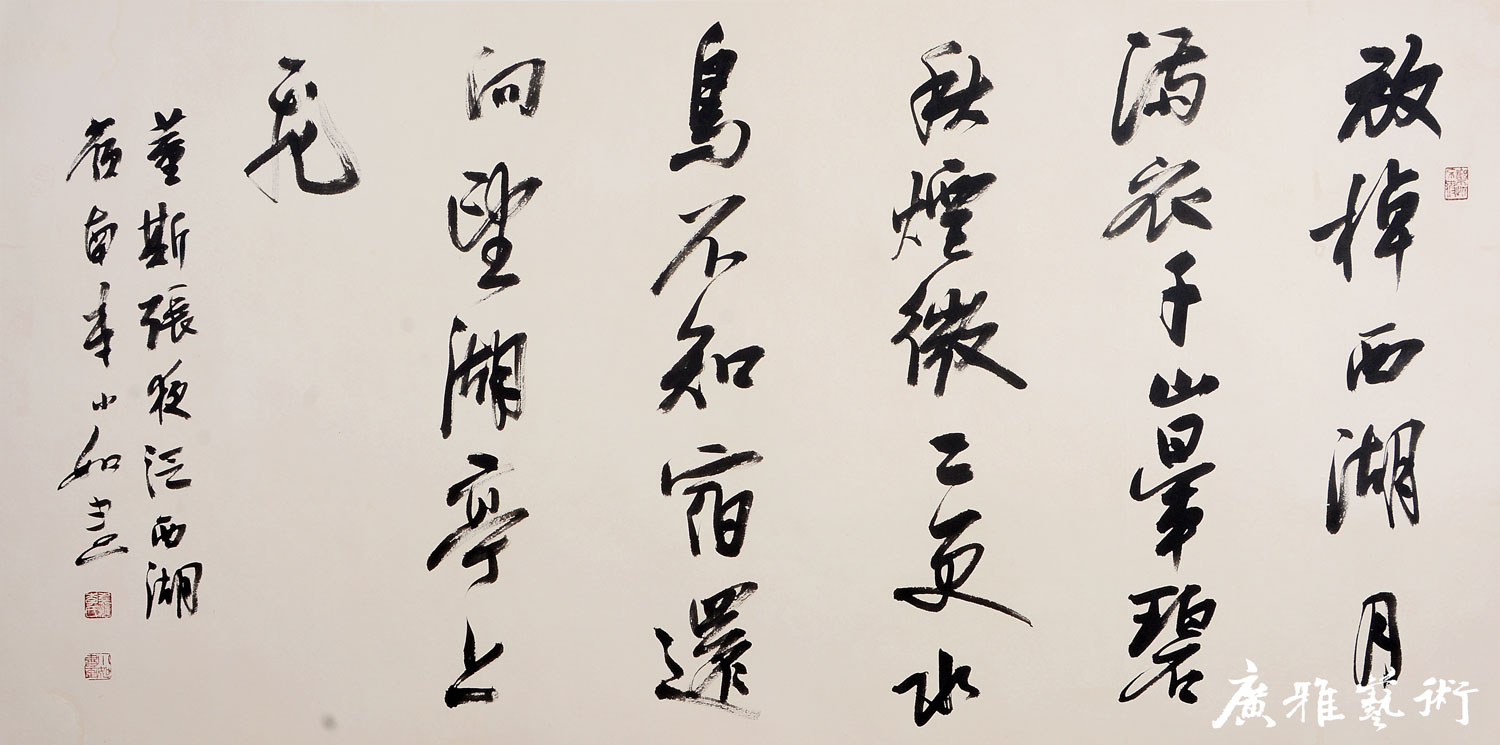 放棹西湖月
滿衣千山暈碧
秋煙微二更水
鳥不知宿還
向望湖亭上
飛
董斯張夜泛西湖
嶺南小如書
廣雅藝術